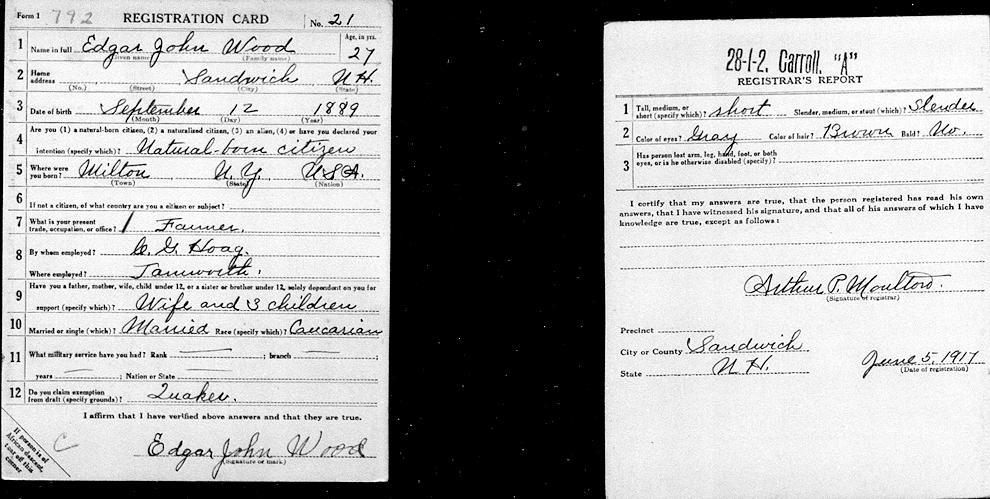 Form 1 792 REGISTRATION CARD No. 21
1 Name in full Edgar John Wood Age, in yrs. 27
(Given name) (Family name)
2 Home address Sandwich N.H.
(No.) (Street) (City) (State)
3 Date of birth September 12 1889
(Month) (Day) (Year)
4 Are you (1) a natural-born citizen, (2) a naturalized citizen, (3) an alien, (4) or have you declared your
intention (specify which)? Natural-born citizen
5 Where were you born? Milton N.Y. USA.
(Town) (State) (Nation)
6 If not a citizen, of what country are you a citizen or subject?
7 What is your present trade, occupation, or office? Farmer.
8 By whom employed? C. G. Hoag.
Where employed? Tamworth.
9 Have you a father, mother, wife, child under 12, or a sister or brother under 12, solely dependent on you for
support (specify which)? Wife and 3 children
10 Married or single (which)? Married Race (specify which)? Caucasian
11 What military service have you had? Rank ; branch ;
years ; Nation or State
12 Do you claim exemption from draft (specify grounds)? Quaker.
I affirm that I have verified above answers and that they are true.
Edgar John Wood
(Signature or mark)
If person is of
African descent,
tear off this
corner
C
28-1-2. Carroll. "A"
REGISTRAR'S REPORT
1 Tall, medium, or short (specify which)? short Slender, medium, or stout (which)? Slender
2 Color of eyes? Gray Color of hair? Brown Bald? No.
3 Has person lost arm, leg, hand, foot, or both
eyes, or is he otherwise disabled (specify)?
I certify that my answers are true, that the person registered has read his own
answers, that I have witnessed his signature, and that all of his answers of which I have
knowledge are true, except as follows:
Arthur P. Moulton.
(Signature of registrar)
Precinct
City or County Sandwich
State N.H.
June 5, 1917
(Date of registration)